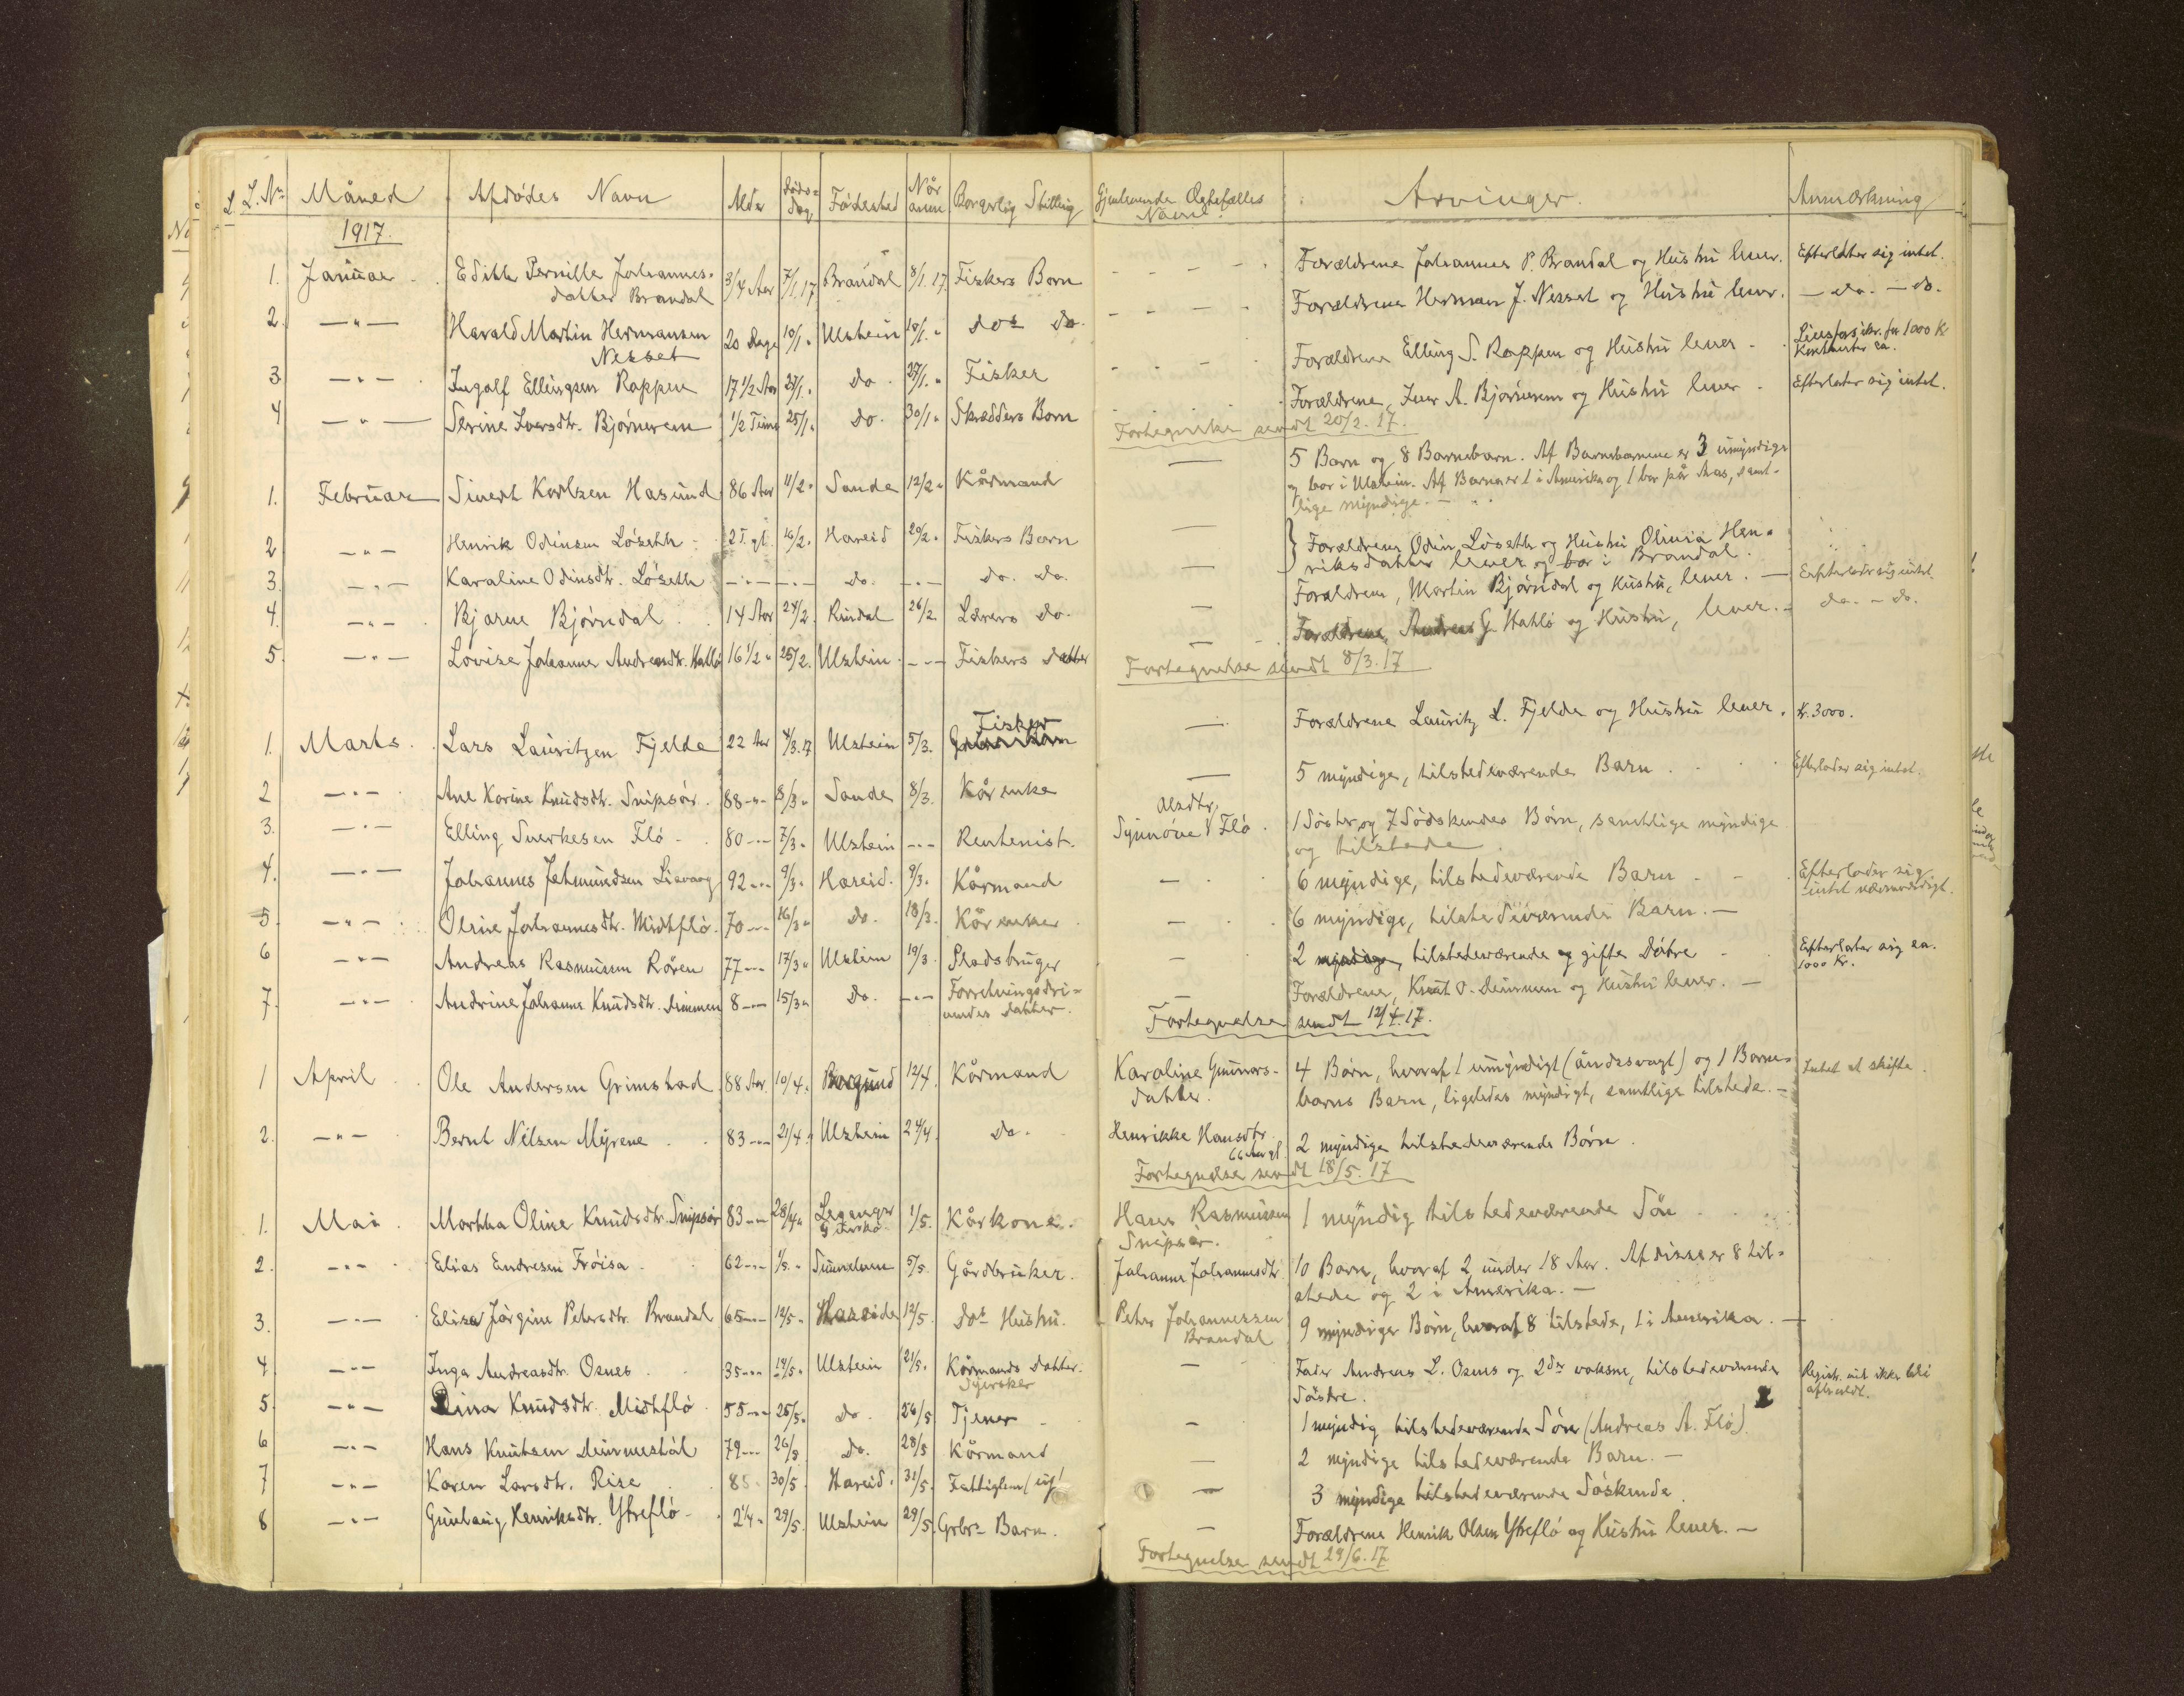 L. Nr. Måned Afdødes Navn Alder Døds-dag Fødested Når anm. Borgerlig Stilling Gjenlevende Ægtefælles Navn Arvinger. Anmærkning
1917.
1. Januar Edith Pernille Johannes- 3/4 Aar 7/1.17 Brandal 8/1.17 Fiskers Barn Forældrene Johannes P. Brandal og Hustru lever. Efterlater sig intet.
datter Brandal
2. —"— Harald Martin Hermansen 20 Dage 10/1. Ulstein 18/1. " do= do. Forældrene Herman J. Nesset og Hustru lever. — do. — do.
Nesset
3. —"— Ingolf Ellingsen Røppen 17 1/2 Aar do. 27/1. " Fisker Forældrene Elling S. Røppen og Hustru lever - Livsforsikr. for 1000 Kr
4 —"— Serine Iversdtr. Bjørnerem 1/2 Time 25/1. do. 30/1. Skrædders Barn Forældrene, Iver A. Bjørnerem og Hustru lever. Efterlater sig intet.
Fortegnelse sendt 20/2. 17.
1. Februar Sivert Karlsen Hasund 86 Aar 11/2. Sande 12/2. Kårmand — 5 Barn og 8 Barnebarn. Af Barnebarnene er 3 umyndige
og bor i Ulstein. Af Barna er 1 i Amerika og 1 bor på Aas, samt-
lige myndige. —
2 —"— Henrik Odinsen Løseth 2 T. gl. 16/2. Hareid 20/2. Fiskers Barn — Forældrene Odin Løseth og Hustru Olivia Hen-
3. —"— Karoline Odinsdtr. Løseth —"— —"— do. —"— do. do. — riksdatter lever og bor i Brandal.
4. —"— Bjarne Bjørndal 14 Aar 24/2. Rindal 26/2. Lærers do. — Forældrene, Martin Bjørndal og Hustru, lever. — Efterlader sig intet.
5. —"— Lovise Johanne Andreasdtr. Hatlø 16 1/2 " 25/2. Ulstein —"— Fiskers datter — Forældrene, Andreas G. Hatlø og Hustru, lever. — do. — do.
Fortegnelse sendt 8/3. 17
1. Marts. Lars Lauritzen Fjelde 22 Aar 4/3.17 Ulstein 5/3. Fisker — Forældrene Lauritz L. Fjelde og Hustru lever. Kr. 3000.
2 —"— Ane Karine Knudsdtr. Snipsør. 88 —"— 8/3 " Sande 8/3. Kårenke — 5 myndige, tilstedeværende Barn. Efterlader sig intet.
3. —"— Elling Sverkesen Flø 80 —"— 7/3. Ulstein —"— Rentenist. Synnøve Flø. 1 Søster og 7 Sødskendes Børn, samtlige myndige
og tilstede.
4. —"— Johannes Johnundsen Liavaag 92 —"— 9/3. Hareid. 9/3. Kårmand — 6 myndige, tilstedeværende Barn - Efterlader sig
intet nævneværdigt.
5. —"— Oline Johannesdtr. Midtflø 70 —"— 16/3 " do. 18/3. Kårenke — 6 myndige, tilstedeværende Barn. —
6 —"— Andreas Rasmussen Røren 77 —"— 17/3 " Ulstein 19/3. Pladsbruger — 2 myndige, tilstedeværende og gifte Døtre - Efterlater sig ca.
1000 Kr.
7. —"— Andrine Johanne Knudsdtr. Dimmen 8 —"— 15/3 " do. —"— Forretningsdri- — Forældrene, Knut O. Dimmen og Hustru lever. —
vendes datter.
Fortegnelse sendt 12/4. 17.
1 April Ole Andersen Grimstad 88 Aar. 10/4. Borgund 12/4. Kårmand Karoline Gunnars- 4 Børn, hvoraf 1 umyndigt (åndssvagt) og 1 Barne- Intet at skifte.
datter. barns Barn, ligeledes myndigt, samtlige tilstede. —
2. —"— Bernt Nilsen Myrene 83 —"— 21/4. Ulstein 24/4. do. Henrikke Hansdtr. 2 myndige tilstedeværende Børn.
66 Aar gl.
Fortegnelse sendt 18/5. 17
1. Mai. Martha Oline Knudsdtr. Snipsør 83 —"— 28/4 " 1/5. Kårkone. Hans Rasmussen 1 myndig tilstedeværende Søn
Snipsør.
2. —"— Elias Endresen Frøisa 62 —"— 1/5. " 5/5. Gårdbruker. Johanne Johannesdtr. 10 Barn, hvoraf 2 under 18 Aar. Af disse er 8 til-
stede og 2 i Amerika. —
3. —"— Elise Jørgine Petersdtr. Brandal 65 —"— 12/5 " Hareide 12/5. Dos Hustru. Peter Johannessen 9 myndiger Børn, hvoraf 8 tilstede, 1 i Amerika. —
Brandal
4. —"— Inga Andreasdtr. Osnes 35 —"— 19/5 " Ulstein 21/5. Kårmands datter. — Fader Andreas L. Osnes og 2de voksne, tilstedeværende Registr. vil ikke bli
Syerske Søstre. afholdt.
5. —"— Dina Knudsdtr. Midtflø 55 —"— 25/5. do 26/5 Tjener — 1 myndig tilstedeværende Søn (Andreas A. Flø).
6 —"— Hans Knutsen Dimmestøl 79 —"— 26/5 do. 28/5 Kårmand — 2 myndige tilstedeværende Barn. —
7 —"— Karen Larsdtr. Rise 85 30/5 Hareid. 31/5. Fattiglem — 3 myndige tilstedeværende Søskende.
8 —"— Gunlaug Henriksdtr. Ytreflø 2 1/4 " 29/5. Ulstein 29/5. Grbrs Barn. — Forældrene Henrik Olsen Ytreflø og Hustru lever. —
Fortegnelse sendt 29/6. 17